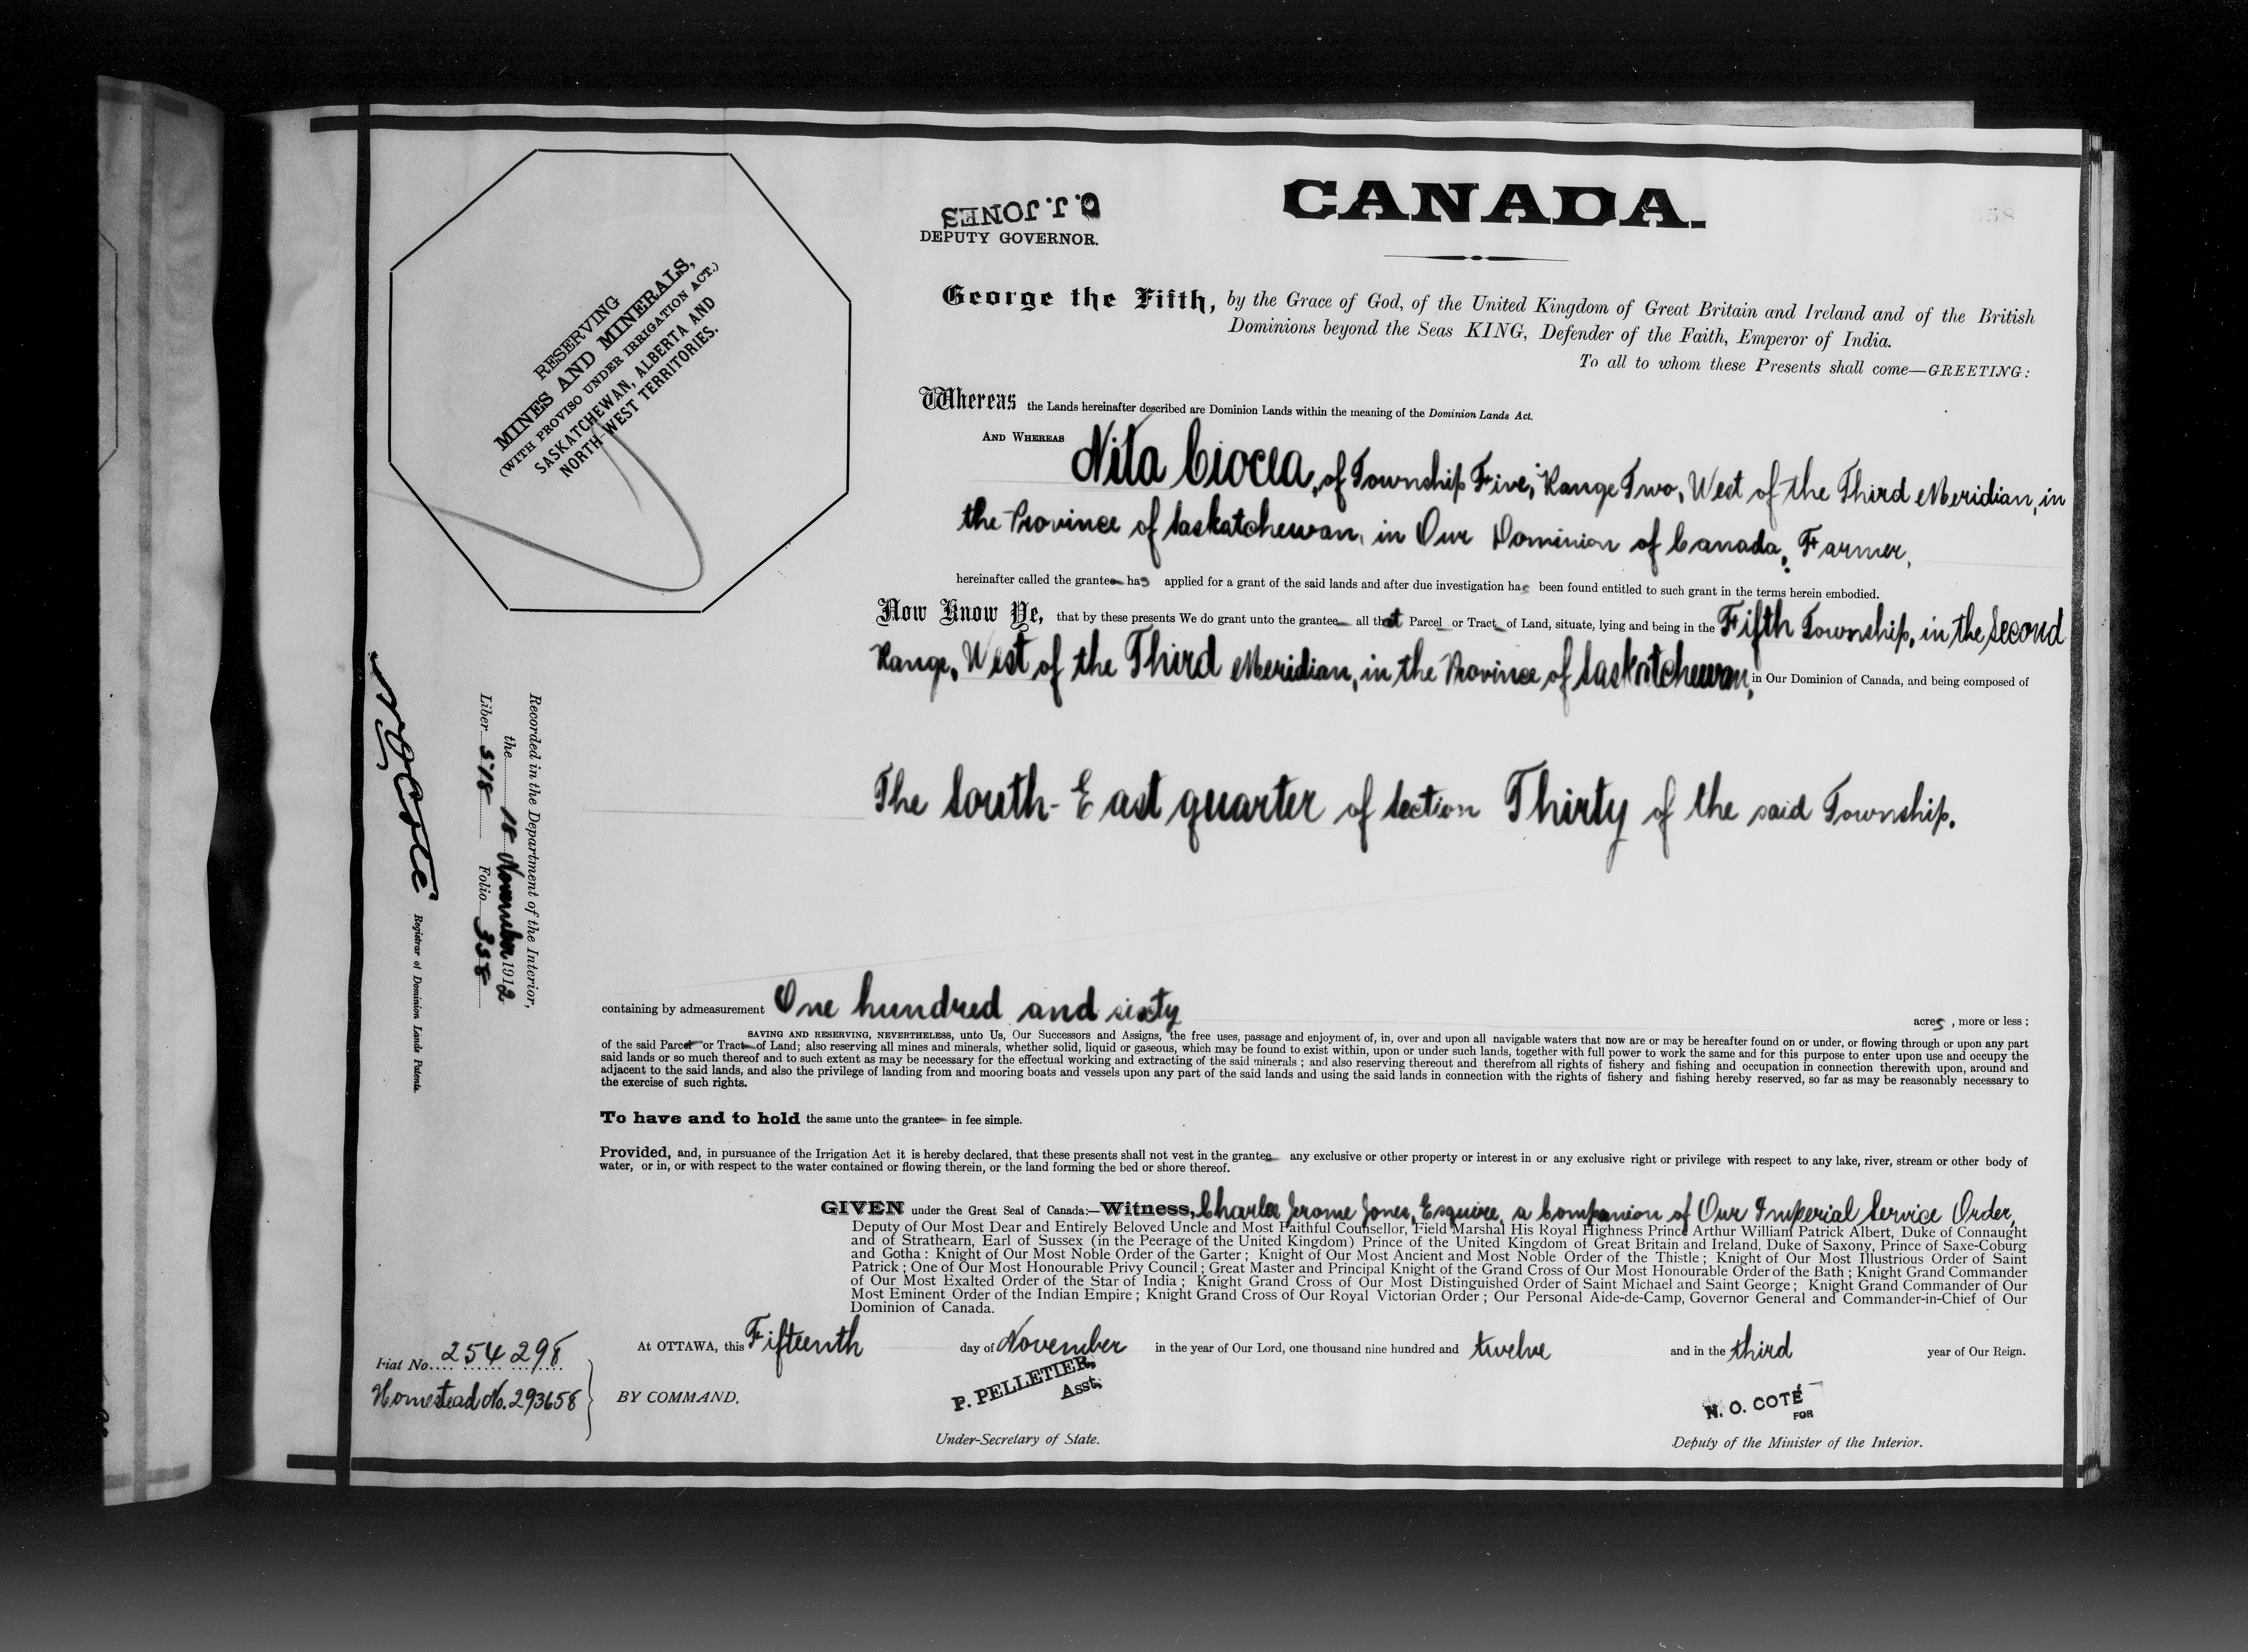 CANADA.
358
C. J. JONES
DEPUTY GOVERNOR.
RESERVING
MINES AND MINERALS,
(WITH PROVISO UNDER IRRIGATION ACT.)
SASKATCHEWAN, ALBERTA AND
NORTH-WEST TERRITORIES.
George the Fifth, by the Grace of God, of the United Kingdom of Great Britain and Ireland and of the British
Dominions beyond the Seas KING, Defender of the Faith, Emperor of India.
To all to whom these Presents shall come—GREETING:
Whereas the Lands hereinafter described are Dominion Lands within the meaning of the Dominion Lands Act.
AND WHEREAS Nita Ciocia, of Township Five, Range Two, West of the Third Meridian, in
the Province of Saskatchewan, in Our Dominion of Canada, Farmer,
hereinafter called the grantee has applied for a grant of the said lands and after due investigation has been found entitled to such grant in the terms herein embodied.
Now Know Ye, that by these presents We do grant unto the grantee all that Parcel or Tract of Land, situate, lying and being in the Fifth Township, in the Second
Range, West of the Third Meridian, in the Province of Saskatchewan, in Our Dominion of Canada, and being composed of
The South-East quarter of Section Thirty of the said Township.
containing by admeasurement One hundred and sixty acres, more or less;
SAVING AND RESERVING, NEVERTHELESS, unto Us, Our Successors and Assigns, the free uses, passage and enjoyment of, in, over and upon all navigable waters that now are or may be hereafter found on or under, or flowing through or upon any part
of the said Parcel or Tract of Land; also reserving all mines and minerals, whether solid, liquid or gaseous, which may be found to exist within, upon or under such lands, together with full power to work the same and for this purpose to enter upon use and occupy the
said lands or so much thereof and to such extent as may be necessary for the effectual working and extracting of the said minerals; and also reserving thereout and therefrom all rights of fishery and fishing and occupation in connection therewith upon, around and
adjacent to the said lands, and also the privilege of landing from and mooring boats and vessels upon any part of the said lands and using the said lands in connection with the rights of fishery and fishing hereby reserved, so far as may be reasonably necessary to
the exercise of such rights.
To have and to hold the same unto the grantee in fee simple.
Provided, and, in pursuance of the Irrigation Act it is hereby declared, that these presents shall not vest in the grantee any exclusive or other property or interest in or any exclusive right or privilege with respect to any lake, river, stream or other body of
water, or in, or with respect to the water contained or flowing therein, or the land forming the bed or shore thereof.
GIVEN under the Great Seal of Canada:—Witness, Charles Jerome Jones, Esquire, a Companion of Our Imperial Service Order,
Deputy of Our Most Dear and Entirely Beloved Uncle and Most Faithful Counsellor, Field Marshal His Royal Highness Prince Arthur William Patrick Albert, Duke of Connaught
and of Strathearn, Earl of Sussex (in the Peerage of the United Kingdom) Prince of the United Kingdom of Great Britain and Ireland, Duke of Saxony, Prince of Saxe-Coburg
and Gotha: Knight of Our Most Noble Order of the Garter; Knight of Our Most Ancient and Most Noble Order of the Thistle; Knight of Our Most Illustrious Order of Saint
Patrick; One of Our Most Honourable Privy Council; Great Master and Principal Knight of the Grand Cross of Our Most Honourable Order of the Bath; Knight Grand Commander
of Our Most Exalted Order of the Star of India; Knight Grand Cross of Our Most Distinguished Order of Saint Michael and Saint George; Knight Grand Commander of Our
Most Eminent Order of the Indian Empire; Knight Grand Cross of Our Royal Victorian Order; Our Personal Aide-de-Camp, Governor General and Commander-in-Chief of Our
Dominion of Canada.
At OTTAWA, this Fifteenth day of November in the year of Our Lord, one thousand nine hundred and twelve and in the third year of Our Reign.
Fiat No. 254298
Homestead No. 293658
BY COMMAND,
P. PELLETIER,
Asst.
Under-Secretary of State.
N. O. COTÉ
FOR
Deputy of the Minister of the Interior.
Recorded in the Department of the Interior,
the 18 November 1912
Liber 518 Folio 358
N O Coté
Registrar of Dominion Lands Patents.